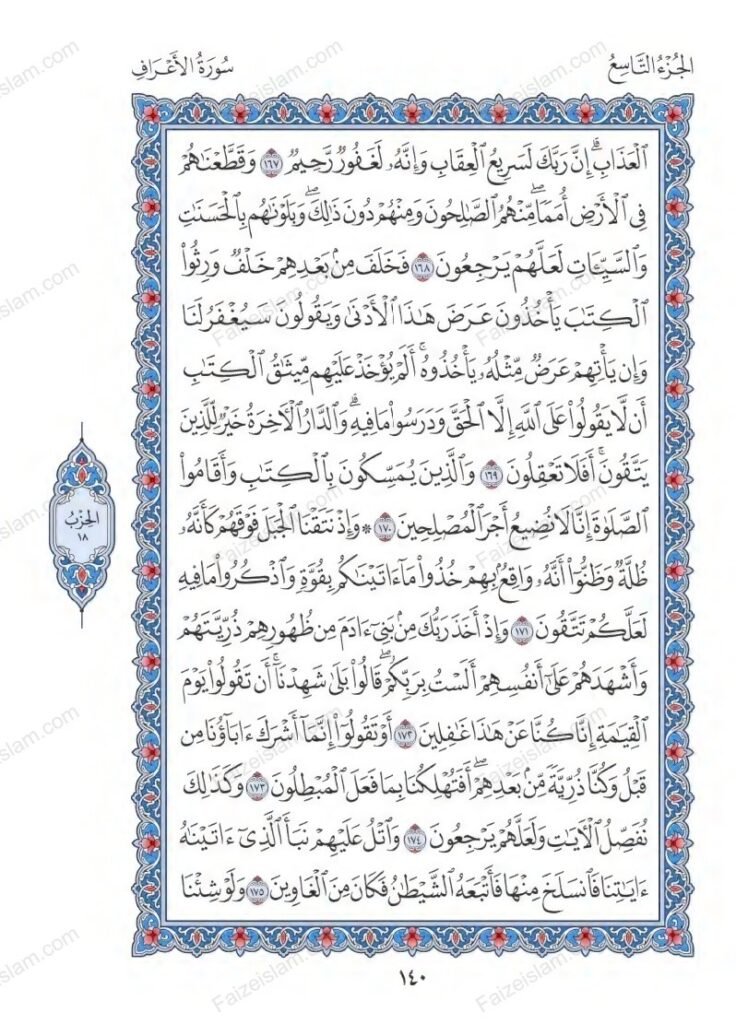 الجُزْءُ التَّاسِعُ
سُورَةُ الأَعْرَافِ
ٱلْعَذَابِۗ إِنَّ رَبَّكَ لَسَرِيعُ ٱلْعِقَابِ وَإِنَّهُۥ لَغَفُورٌ رَّحِيمٌ ١٦٧ وَقَطَّعْنَٰهُمْ
فِى ٱلْأَرْضِ أُمَمًاۖ مِّنْهُمُ ٱلصَّٰلِحُونَ وَمِنْهُمْ دُونَ ذَٰلِكَۖ وَبَلَوْنَٰهُم بِٱلْحَسَنَٰتِ
وَٱلسَّيِّـَٔاتِ لَعَلَّهُمْ يَرْجِعُونَ ١٦٨ فَخَلَفَ مِنۢ بَعْدِهِمْ خَلْفٌ وَرِثُوا۟
ٱلْكِتَٰبَ يَأْخُذُونَ عَرَضَ هَٰذَا ٱلْأَدْنَىٰ وَيَقُولُونَ سَيُغْفَرُ لَنَا
وَإِن يَأْتِهِمْ عَرَضٌ مِّثْلُهُۥ يَأْخُذُوهُۚ أَلَمْ يُؤْخَذْ عَلَيْهِم مِّيثَٰقُ ٱلْكِتَٰبِ
أَن لَّا يَقُولُوا۟ عَلَى ٱللَّهِ إِلَّا ٱلْحَقَّ وَدَرَسُوا۟ مَا فِيهِۗ وَٱلدَّارُ ٱلْءَاخِرَةُ خَيْرٌ لِّلَّذِينَ
يَتَّقُونَۚ أَفَلَا تَعْقِلُونَ ١٦٩ وَٱلَّذِينَ يُمَسِّكُونَ بِٱلْكِتَٰبِ وَأَقَامُوا۟
ٱلصَّلَوٰةَ إِنَّا لَا نُضِيعُ أَجْرَ ٱلْمُصْلِحِينَ ١٧٠ * وَإِذْ نَتَقْنَا ٱلْجَبَلَ فَوْقَهُمْ كَأَنَّهُۥ
ظُلَّةٌ وَظَنُّوٓا۟ أَنَّهُۥ وَاقِعٌۢ بِهِمْ خُذُوا۟ مَآ ءَاتَيْنَٰكُم بِقُوَّةٍ وَٱذْكُرُوا۟ مَا فِيهِ
لَعَلَّكُمْ تَتَّقُونَ ١٧١ وَإِذْ أَخَذَ رَبُّكَ مِنۢ بَنِىٓ ءَادَمَ مِن ظُهُورِهِمْ ذُرِّيَّتَهُمْ
وَأَشْهَدَهُمْ عَلَىٰٓ أَنفُسِهِمْ أَلَسْتُ بِرَبِّكُمْۖ قَالُوا۟ بَلَىٰ شَهِدْنَآۚ أَن تَقُولُوا۟ يَوْمَ
ٱلْقِيَٰمَةِ إِنَّا كُنَّا عَنْ هَٰذَا غَٰفِلِينَ ١٧٢ أَوْ تَقُولُوٓا۟ إِنَّمَآ أَشْرَكَ ءَابَآؤُنَا مِن
قَبْلُ وَكُنَّا ذُرِّيَّةً مِّنۢ بَعْدِهِمْۖ أَفَتُهْلِكُنَا بِمَا فَعَلَ ٱلْمُبْطِلُونَ ١٧٣ وَكَذَٰلِكَ
نُفَصِّلُ ٱلْءَايَٰتِ وَلَعَلَّهُمْ يَرْجِعُونَ ١٧٤ وَٱتْلُ عَلَيْهِمْ نَبَأَ ٱلَّذِىٓ ءَاتَيْنَٰهُ
ءَايَٰتِنَا فَٱنسَلَخَ مِنْهَا فَأَتْبَعَهُ ٱلشَّيْطَٰنُ فَكَانَ مِنَ ٱلْغَاوِينَ ١٧٥ وَلَوْ شِئْنَا
الحِزْبُ
١٨
١٤٠
Faizeislam.com